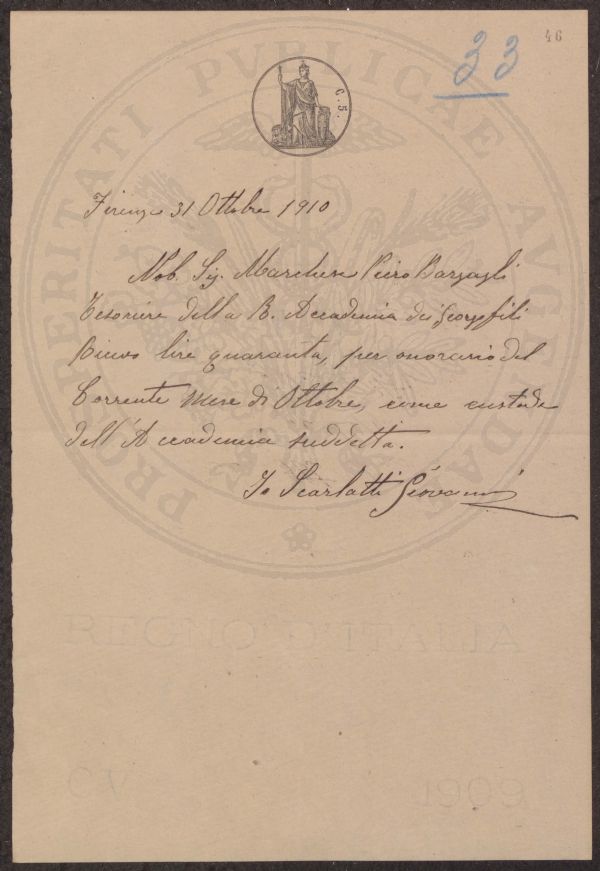 46
33
C. 5.
PROSPERITATI PVBLICAE AVGENDAE
Firenze 31 Ottobre 1910
Nob. Sig. Marchese Piero Bargagli
Tesoriere della R. Accademia dei Georgofili
Ricevo lire quaranta, per onorario del
Corrente Mese di Ottobre, come custode
dell'Accademia suddetta.
Io Scarlatti Giovanni
REGNO D'ITALIA
CV 1909